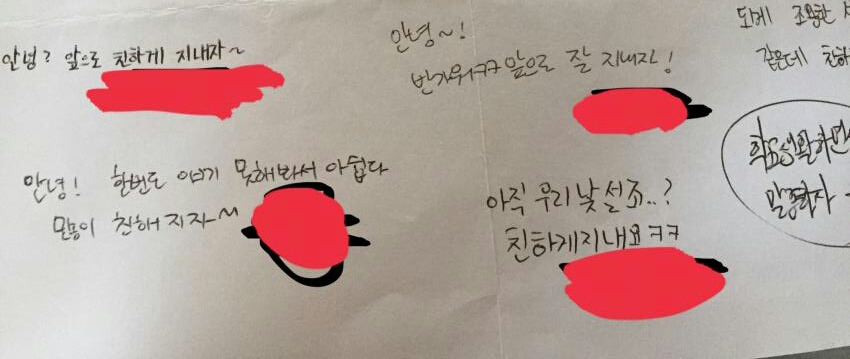 안녕? 앞으로 친하게 지내자~
안녕~!
반가워ㅋㅋ 앞으로 잘 지내자!
되게 조용한
같은데 친하
안녕! 한번도 얘기 못해봐서 아쉽다
친해지자~
아직 우리 낯설죠..?
친하게지내요ㅋㅋ
말 좀 하자